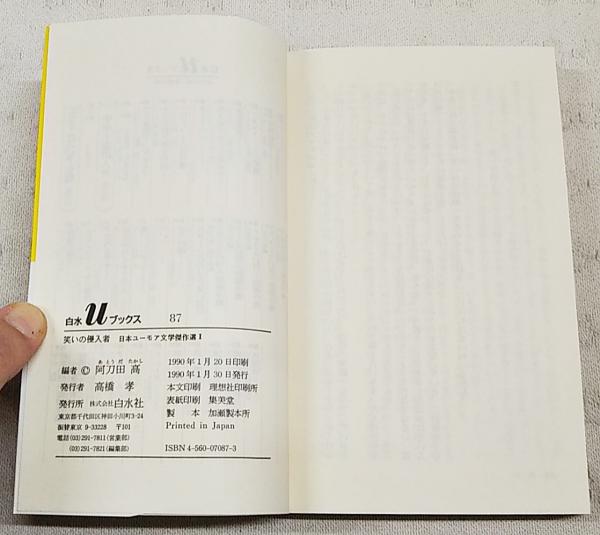 白水uブックス 87
笑いの侵入者 日本ユーモア文学傑作選 I
あとうだ たかし
編者 © 阿刀田 高
発行者 高橋 孝
発行所 株式会社 白水社
東京都千代田区神田小川町3-24
振替東京 9-33228 〒101
電話(03)291-7811(営業部)
(03)291-7821(編集部)
1990年1月20日印刷
1990年1月30日発行
本文印刷 理想社印刷所
表紙印刷 集美堂
製本 加瀬製本所
Printed in Japan
ISBN4-560-07087-3